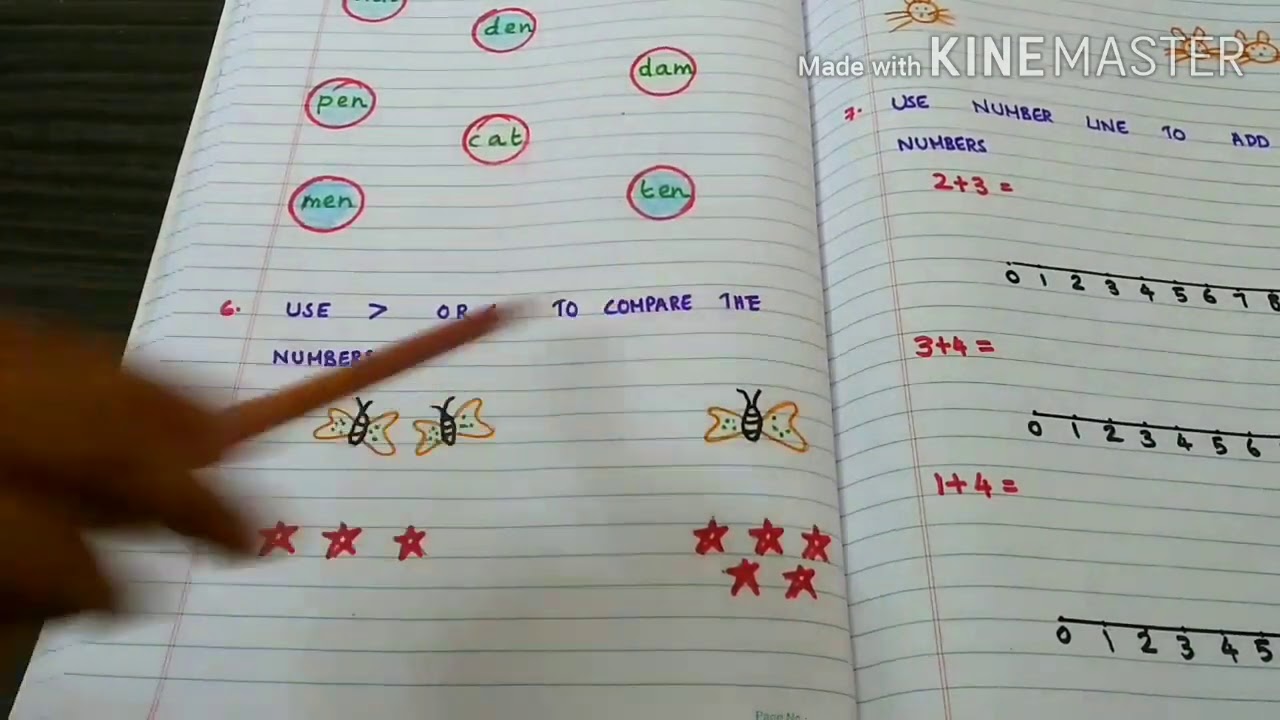 den
dam
pen
cat
men
ten
6. USE > OR TO COMPARE THE
NUMBERS
Page No.
Made with KINEMASTER
7. USE NUMBER LINE TO ADD
NUMBERS
2+3 =
0 1 2 3 4 5 6 7 8
3+4 =
0 1 2 3 4 5 6
1+4 =
0 1 2 3 4 5